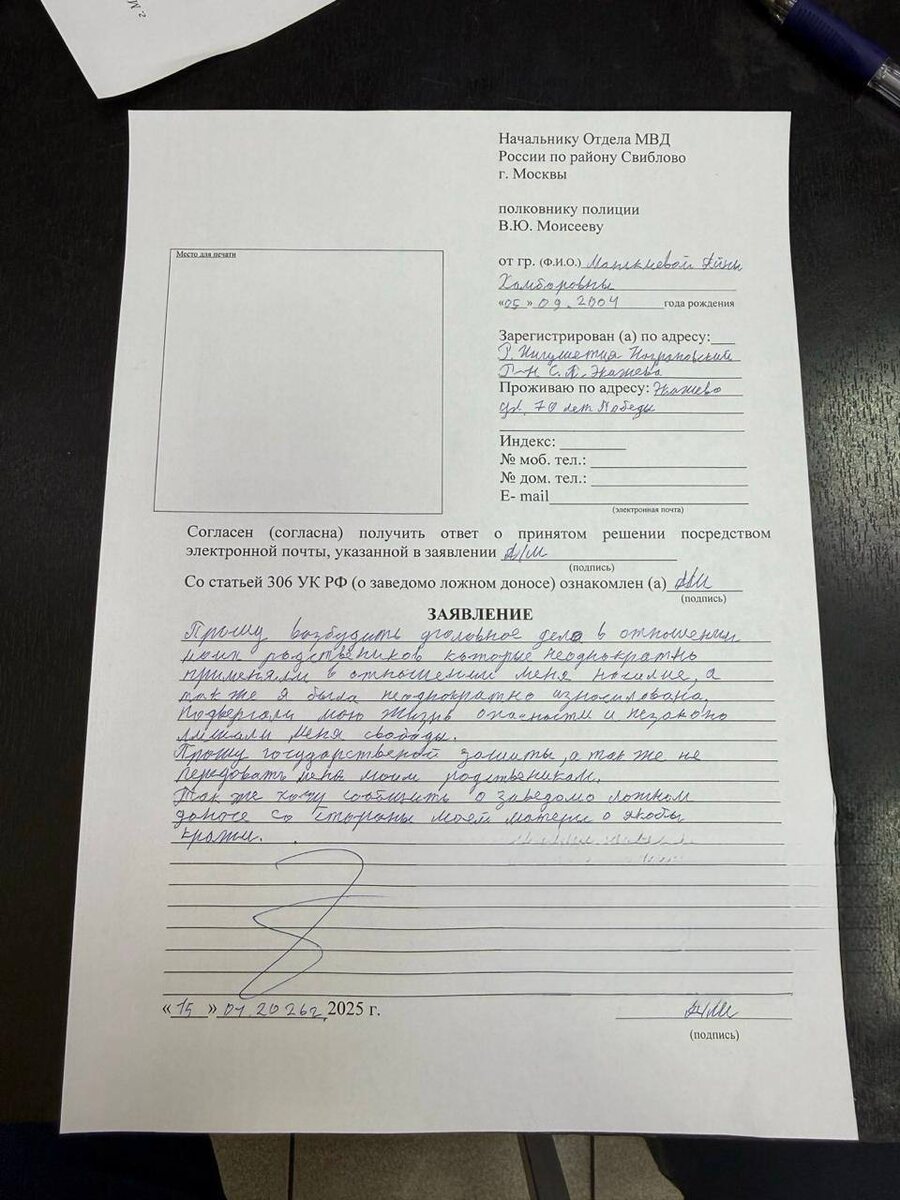 г. М
Начальнику Отдела МВД
России по району Свиблово
г. Москвы
полковнику полиции
В.Ю. Моисееву
Место для печати
от гр. (Ф.И.О.) Манкиевой Айны
Хамборовны
«05» 09.2004 года рождения
Зарегистрирован (а) по адресу:
Р. Ингушетия
Р-Н С.П. Экажева
Проживаю по адресу: Экажево
ул. 70 лет Победы
Индекс:
№ моб. тел.:
№ дом. тел.:
E- mail
(электронная почта)
Согласен (согласна) получить ответ о принятом решении посредством
электронной почты, указанной в заявлении А/М
(подпись)
Со статьей 306 УК РФ (о заведомо ложном доносе) ознакомлен (а) А/М
(подпись)
ЗАЯВЛЕНИЕ
Прошу возбудить уголовное дело в отношении
моих родствеников которые неоднократно
применяли в отношении меня насилие, а
так же я была неоднократно изнасилована,
Подвергали мою жизнь опасности и незаконо
лишали меня свободы.
Прошу государственой защиты, а так же не
передовать меня моим родственикам.
Так же хочу сообщить о заведомо ложном
доносе со стороны моей матери о якобы
кражи.
«15» 01 2026г, 2025 г.
А/М
(подпись)